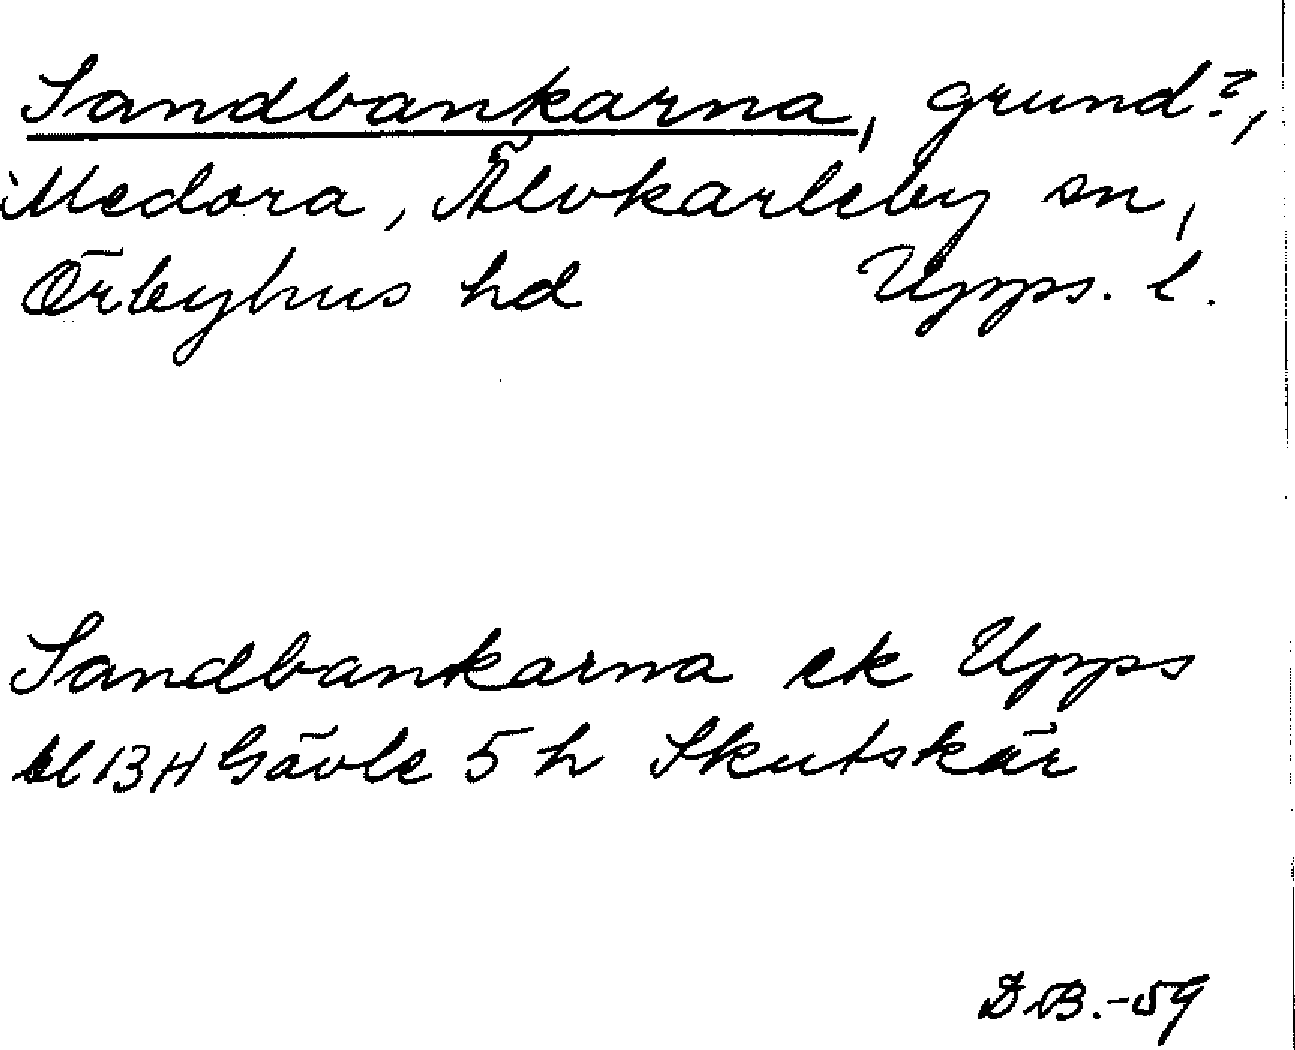 Sandbankarna, grund?,
Medora, Älvkarleby sn,
Örbyhus hd Upps. l.
Sandbankarna ek Upps
bl 13 H Gävle 5 h Skutskär
D.B.-59